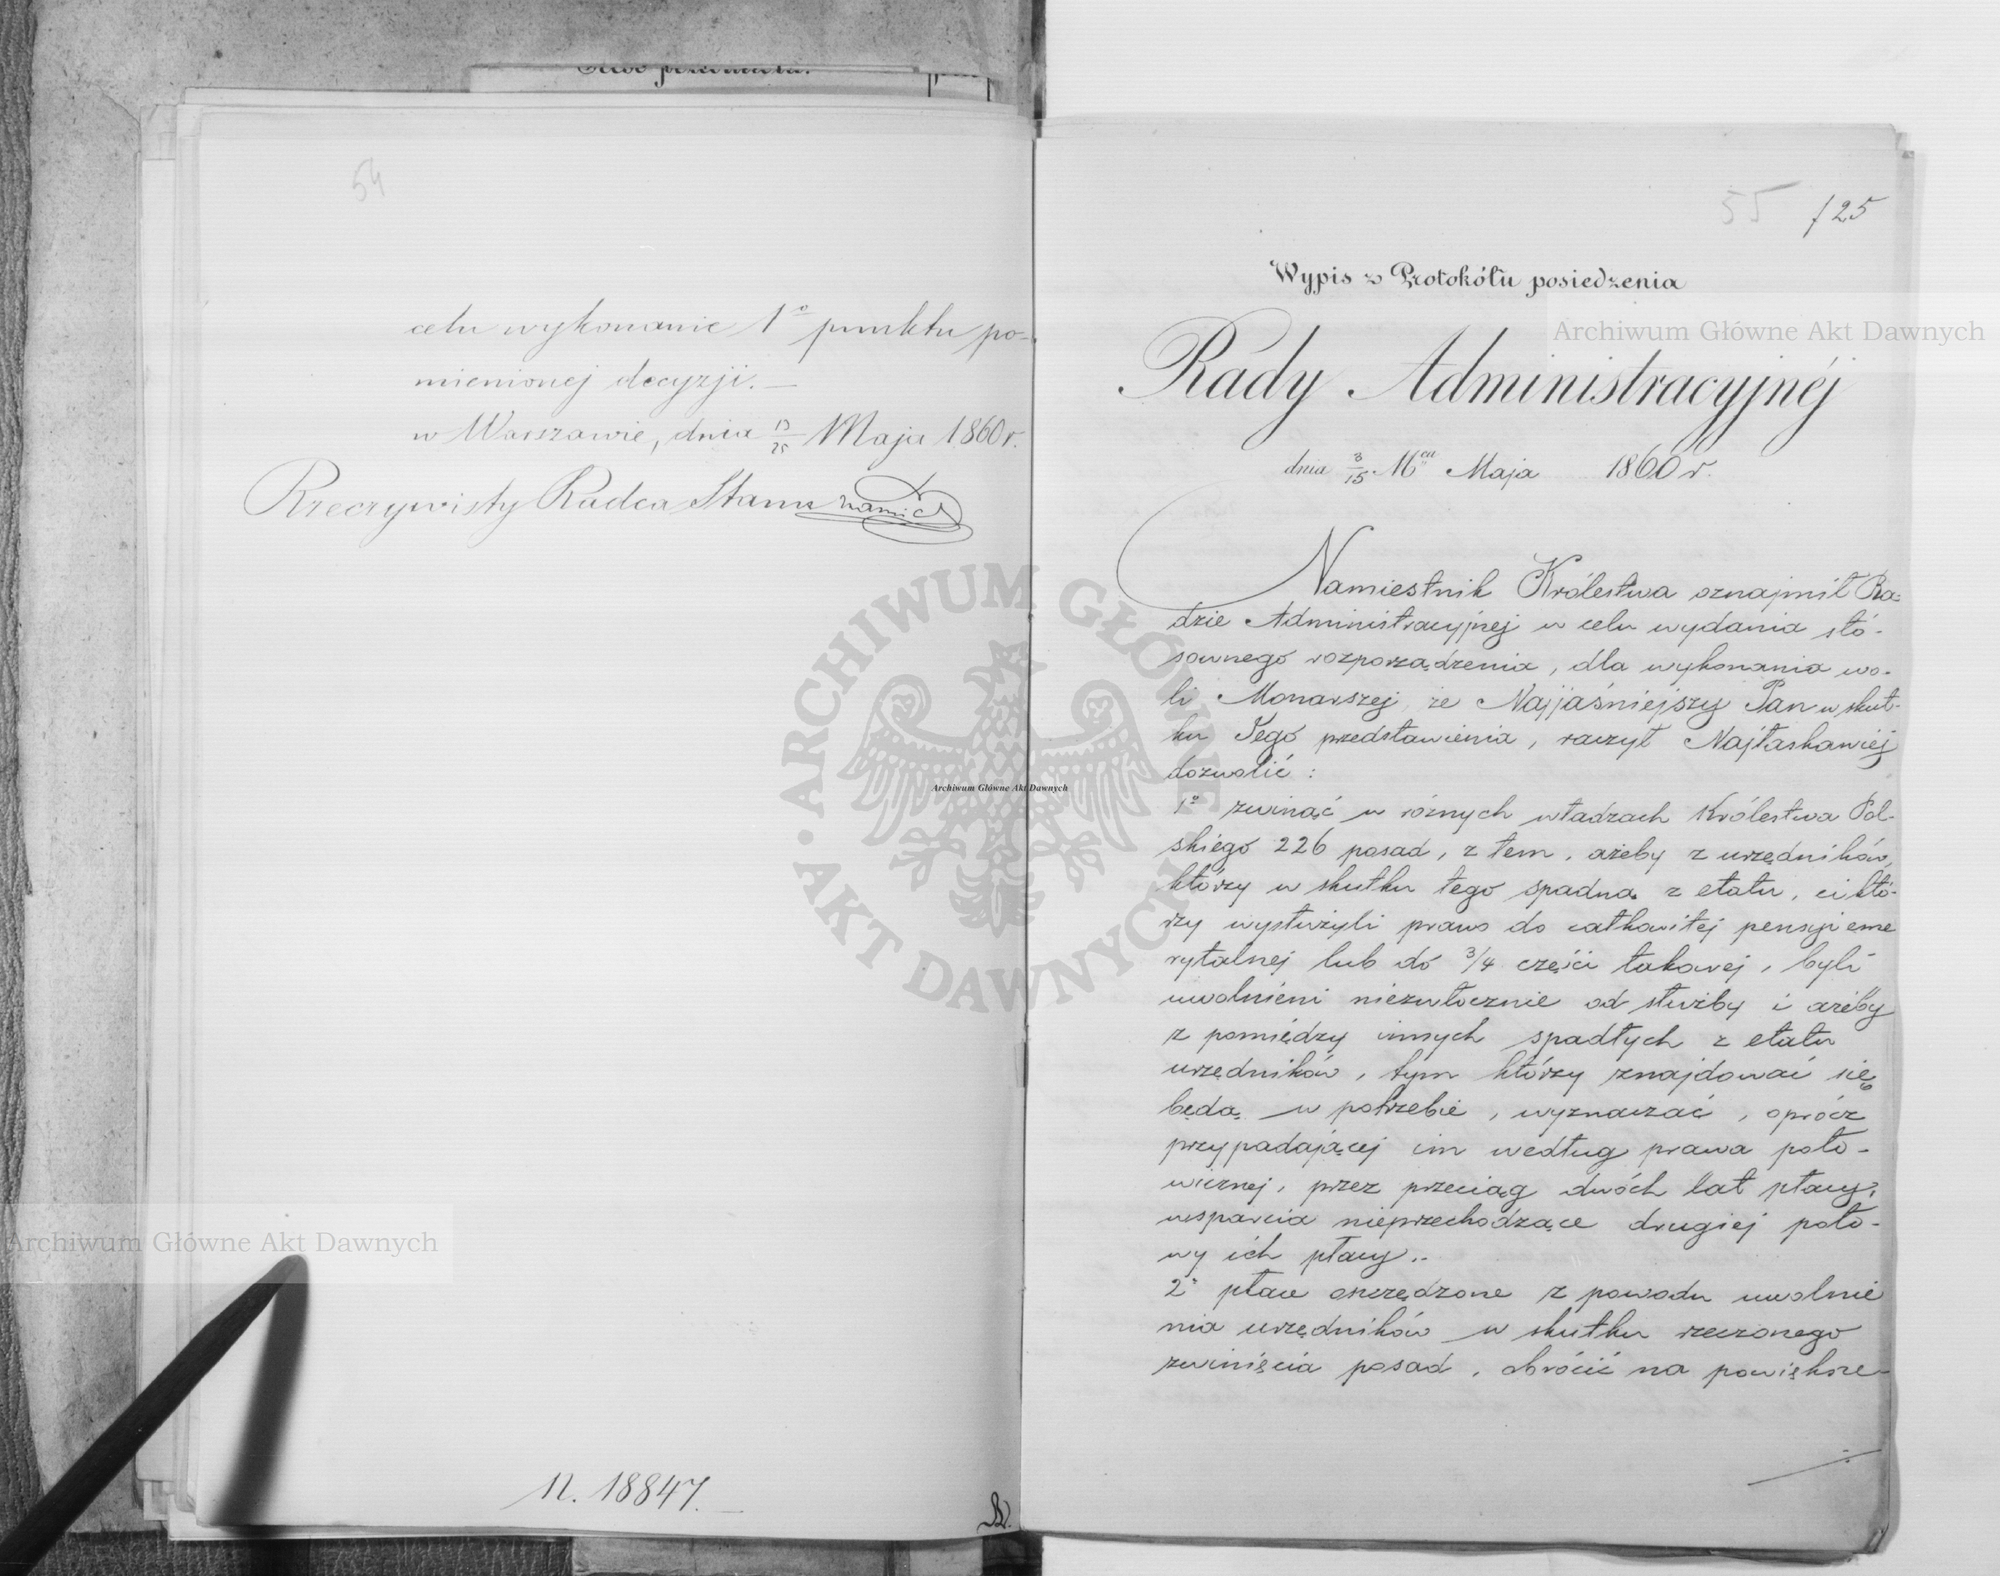 54
celu wykonanie 1° punktu po-
mienionej decyzji. —
w Warszawie, dnia 13/25 Maja 1860 r.
Rzeczywisty Radca Stanu
N. 18847.
55 125
Wypis z Protokółu posiedzenia
Rady Administracyjnéj
dnia 3/15 Mca Maja 1860 r.
Namiestnik Królestwa oznajmił Ra-
dzie Administracyjnej w celu wydania stó-
sownego rozporządzenia, dla wykonania wo-
li Monarszej, że Najjaśniejszy Pan w skut-
ku Jego przedstawienia, raczył Najłaskawiéj
dozwolić :
1° zwinąć w różnych władzach Królestwa Pol-
skiego 226 posad, z tem, ażeby z urzędników,
którzy w skutku tego spadną z etatu, ci któ-
rzy wysłużyli prawo do całkowitej pensyi eme
rytalnej lub do 3/4 części takowej, byli
uwolnieni niezwłocznie od służby i ażeby
z pomiędzy innych spadłych z etatu
urzędników, tym którzy znajdować się
będą w potrzebie, wyznaczać, oprócz
przypadającej im według prawa poło-
wicznej, przez przeciąg dwóch lat płacy,
wsparcia nieprzechodzące drugiej poło-
wy ich płacy..
2° płace oszczędzone z powodu uwolnie
nia urzędników w skutku rzeczonego
zwinięcia posad, obrócić na powiększe-
Archiwum Główne Akt Dawnych
Archiwum Główne Akt Dawnych
Archiwum Główne Akt Dawnych
ARCHIWUM GŁÓWNE • AKT DAWNYCH •